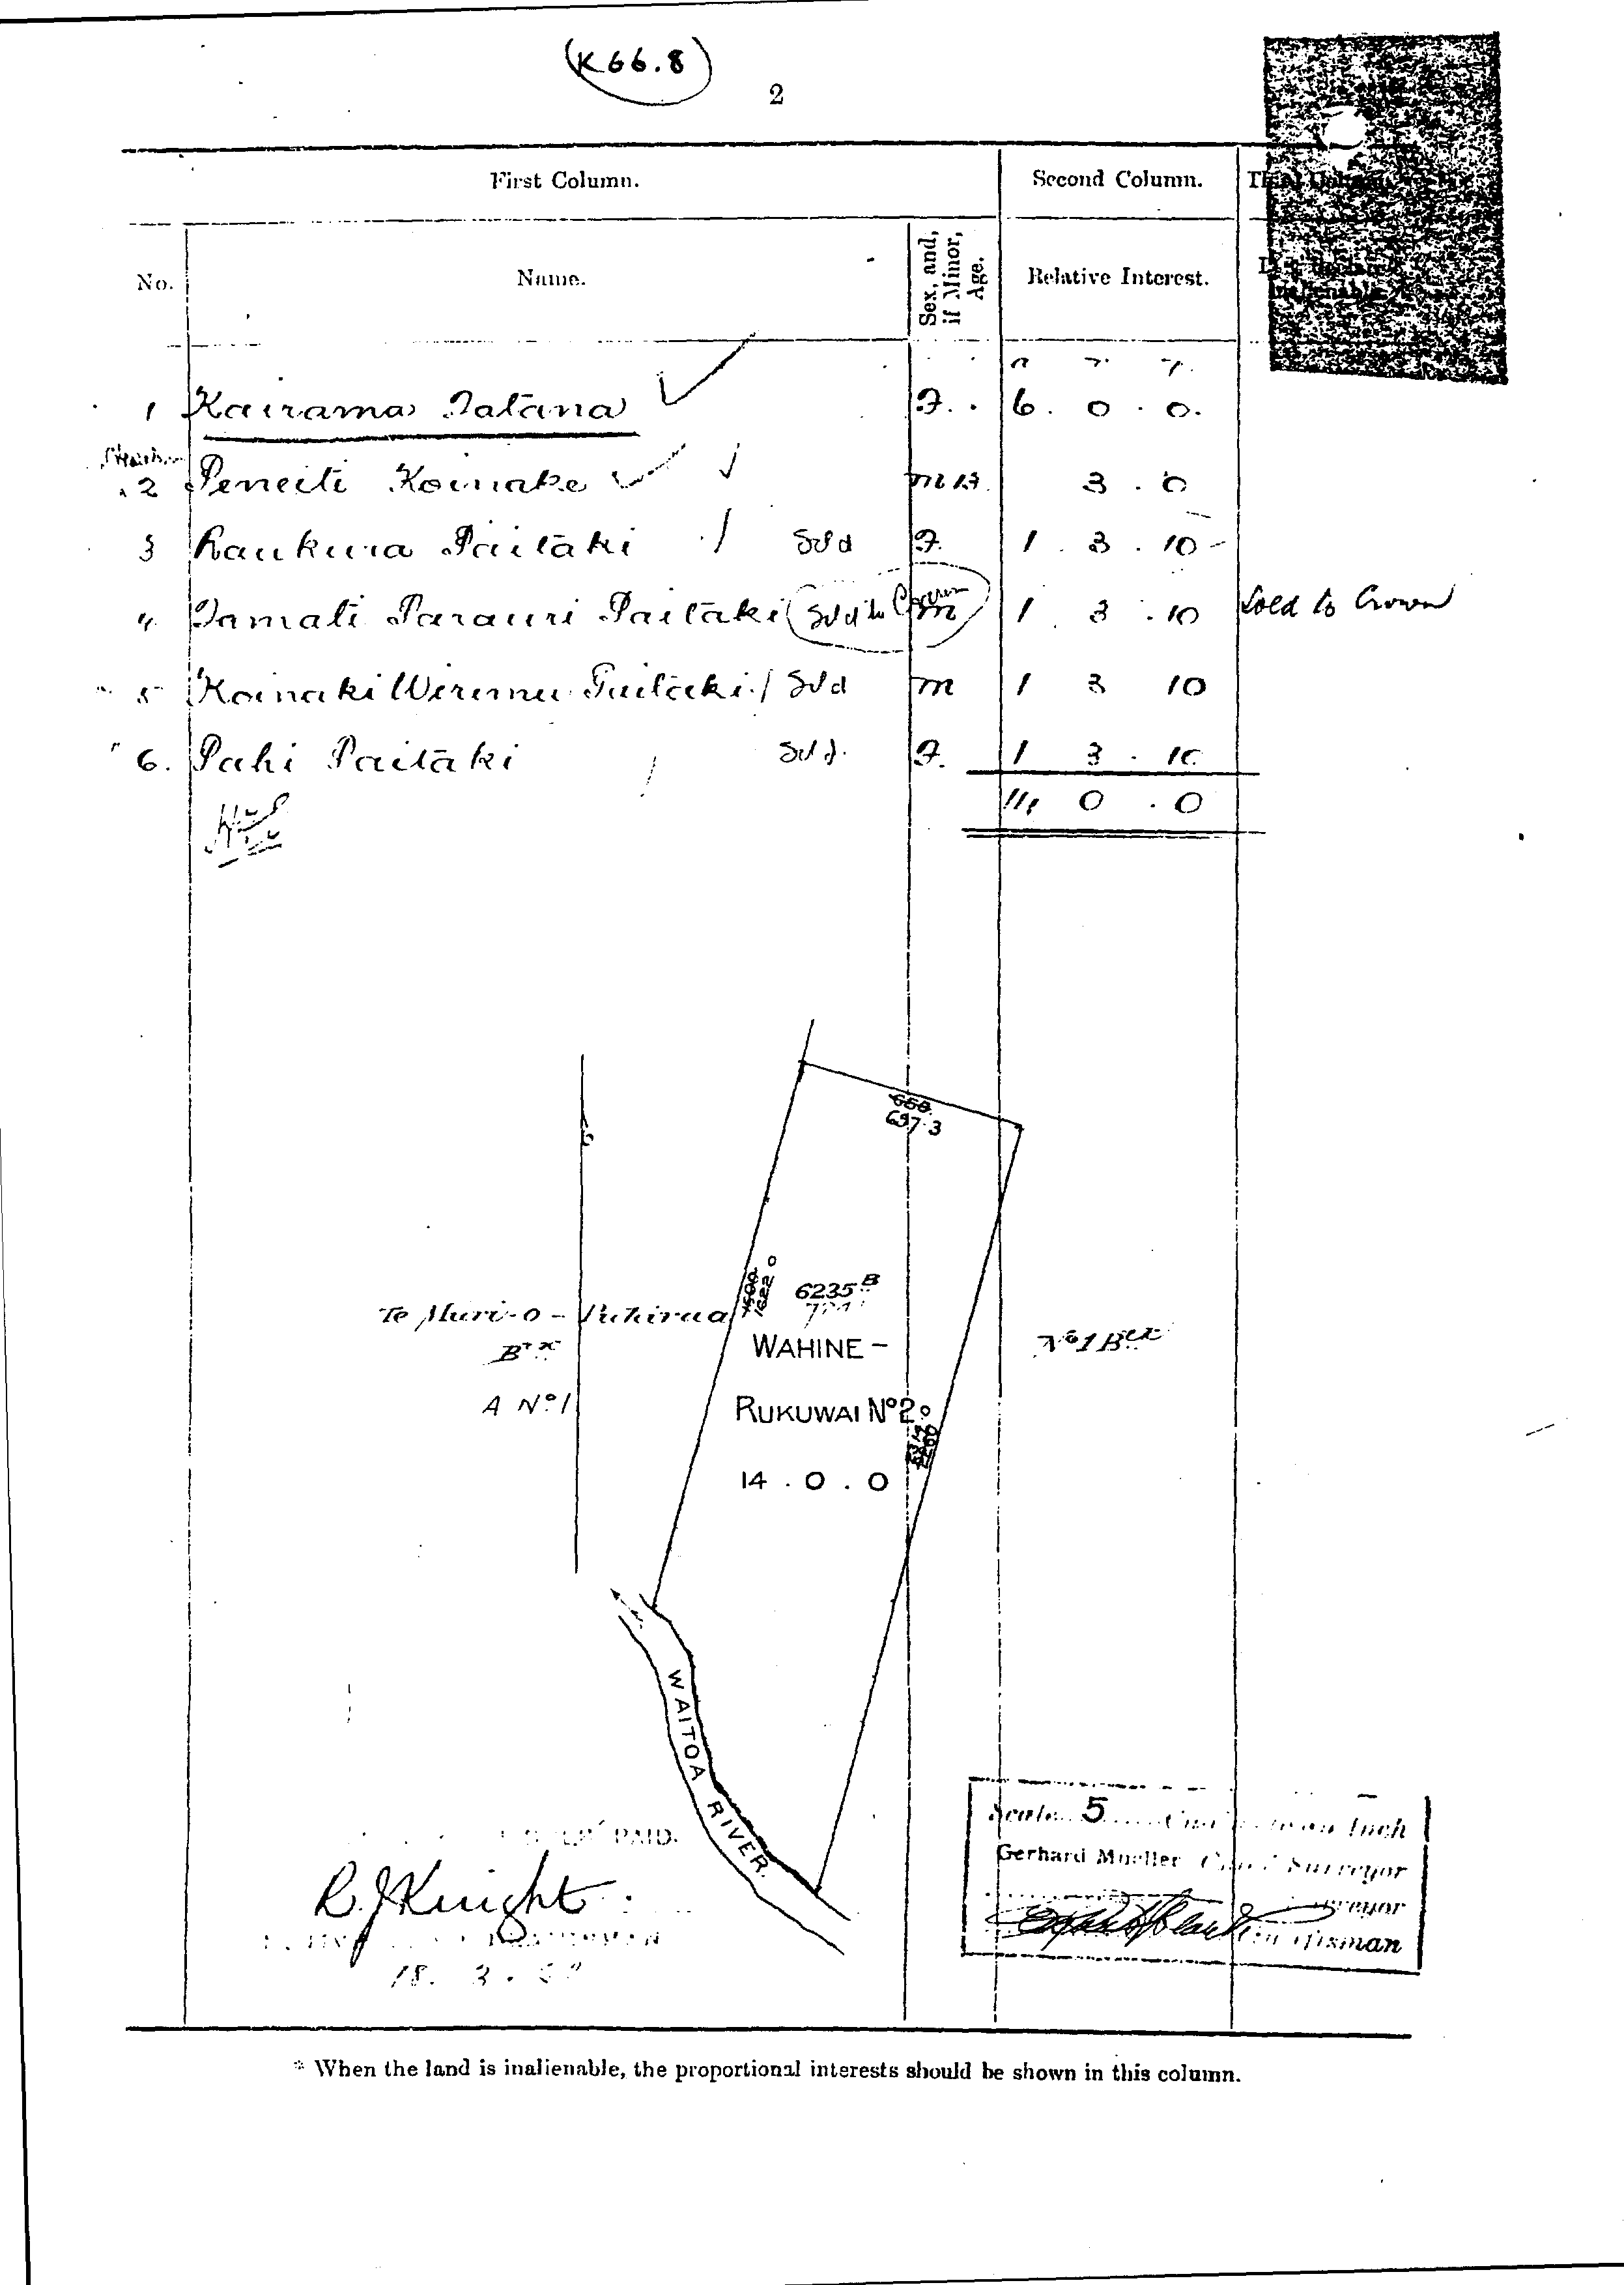 (K66.8)
2
First Column. Second Column.
No. Name. Sex, and, if Minor, Age. Relative Interest.
1 Kairama Tatana F. 6. 0. 0.
2 Peneiti Koinake m 13. 3. 0
3 Raukura Paitaki Sold F. 1. 3. 10
4 Tamati Parauri Paitaki Sold to Crown m 1. 3. 10 Sold to Crown
5 Koinaki Wiremu Paitaki Sold m 1 3 10
6. Pahi Paitaki Sold. F. 1 3. 10
14 0. 0
650.
697.3
1500
1622.0
6235 B
Te Muri-o-Puhirua
WAHINE-
No 1 Bck
A No. 1
RUKUWAI No 2
14. 0. 0
WAITOA RIVER.
PAID.
R. J. Knight
18. 3.
Scale 5 an Inch
Gerhard Mueller Chief Surveyor
Surveyor
Draftsman
* When the land is inalienable, the proportional interests should be shown in this column.